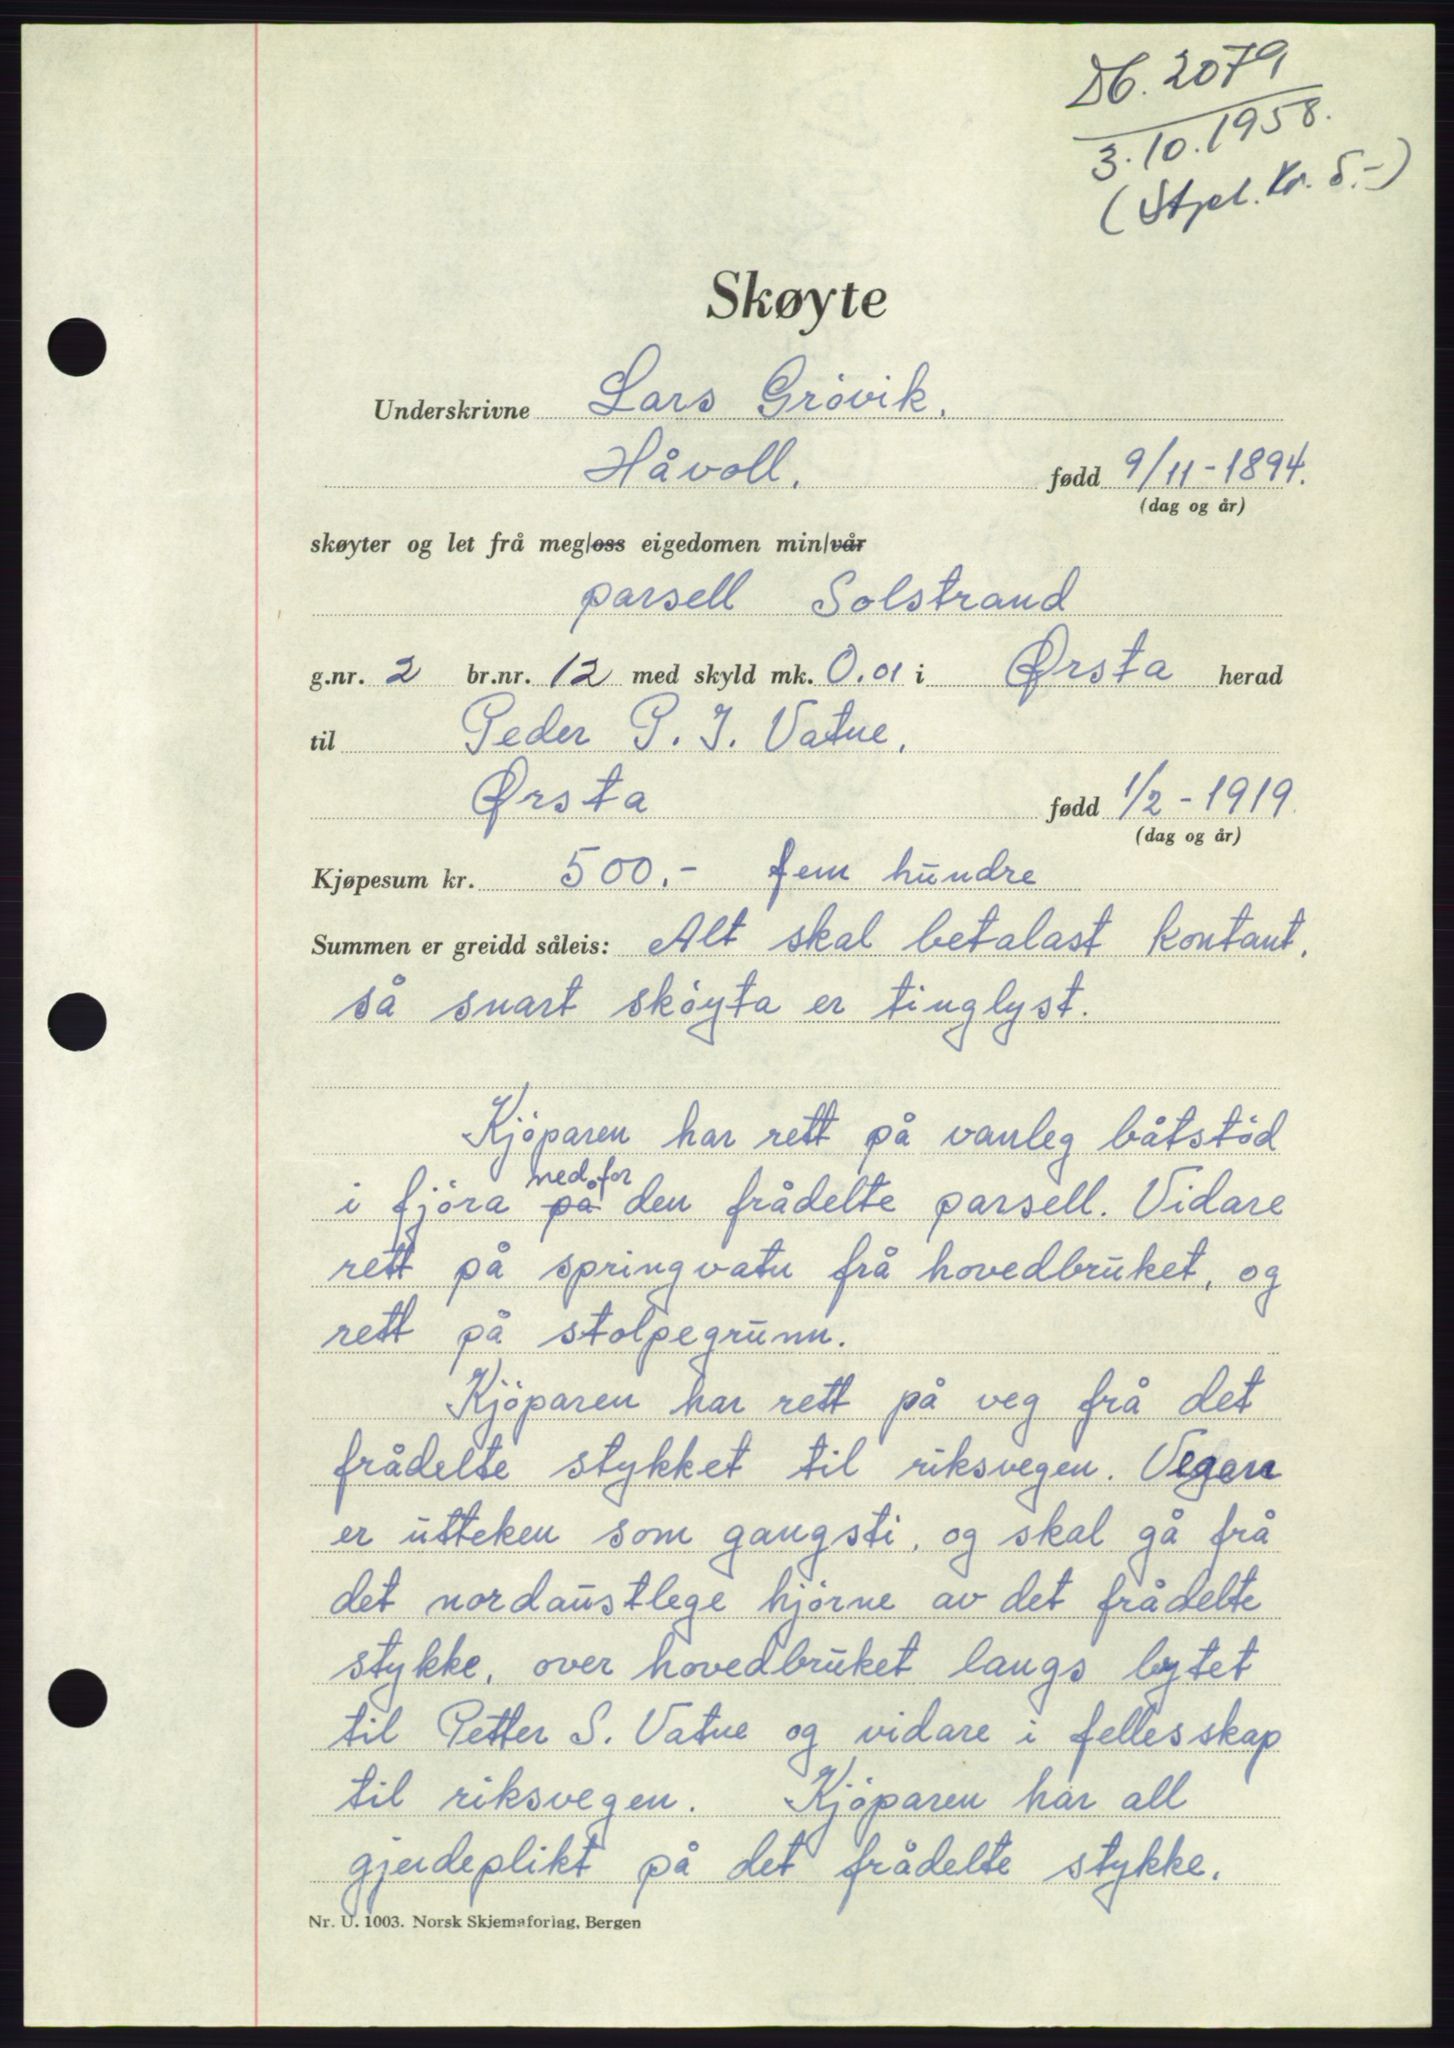 Db. 2079
3.10.1958.
(Stpl. Kr. 5.-)
Skøyte
Underskrivne Lars Gróvik,
Håvoll, fødd 9/11-1894.
(dag og år)
skøyter og let frå meg/oss eigedomen min/vår
parsell Solstrand
g.nr. 2 br.nr. 12 med skyld mk. 0.01 i Ørsta herad
til Peder P. J. Vatne,
Ørsta fødd 1/2-1919
(dag og år)
Kjøpesum kr. 500.- fem hundre
Summen er greidd såleis: Alt skal betalast kontant,
så snart skóyta er tinglyst.
Kjóparen har rett på vanleg båtstód
i fjóra på nedfor den frådelte parsell. Vidare
rett på springvatn frå hovedbruket, og
rett på stolpegrunn.
Kjóparen har rett på veg frå det
frådelte stykket til riksvegen. Vegen
er utteken som gangsti, og skal gå frå
det nordaustlege hjórne av det frådelte
stykke, over hovedbruket langs bytet
til Petter S. Vatne og vidare i fellesskap
til riksvegen. Kjóparen har all
gjerdeplikt på det frådelte stykke.
Nr. U. 1003. Norsk Skjemaforlag, Bergen